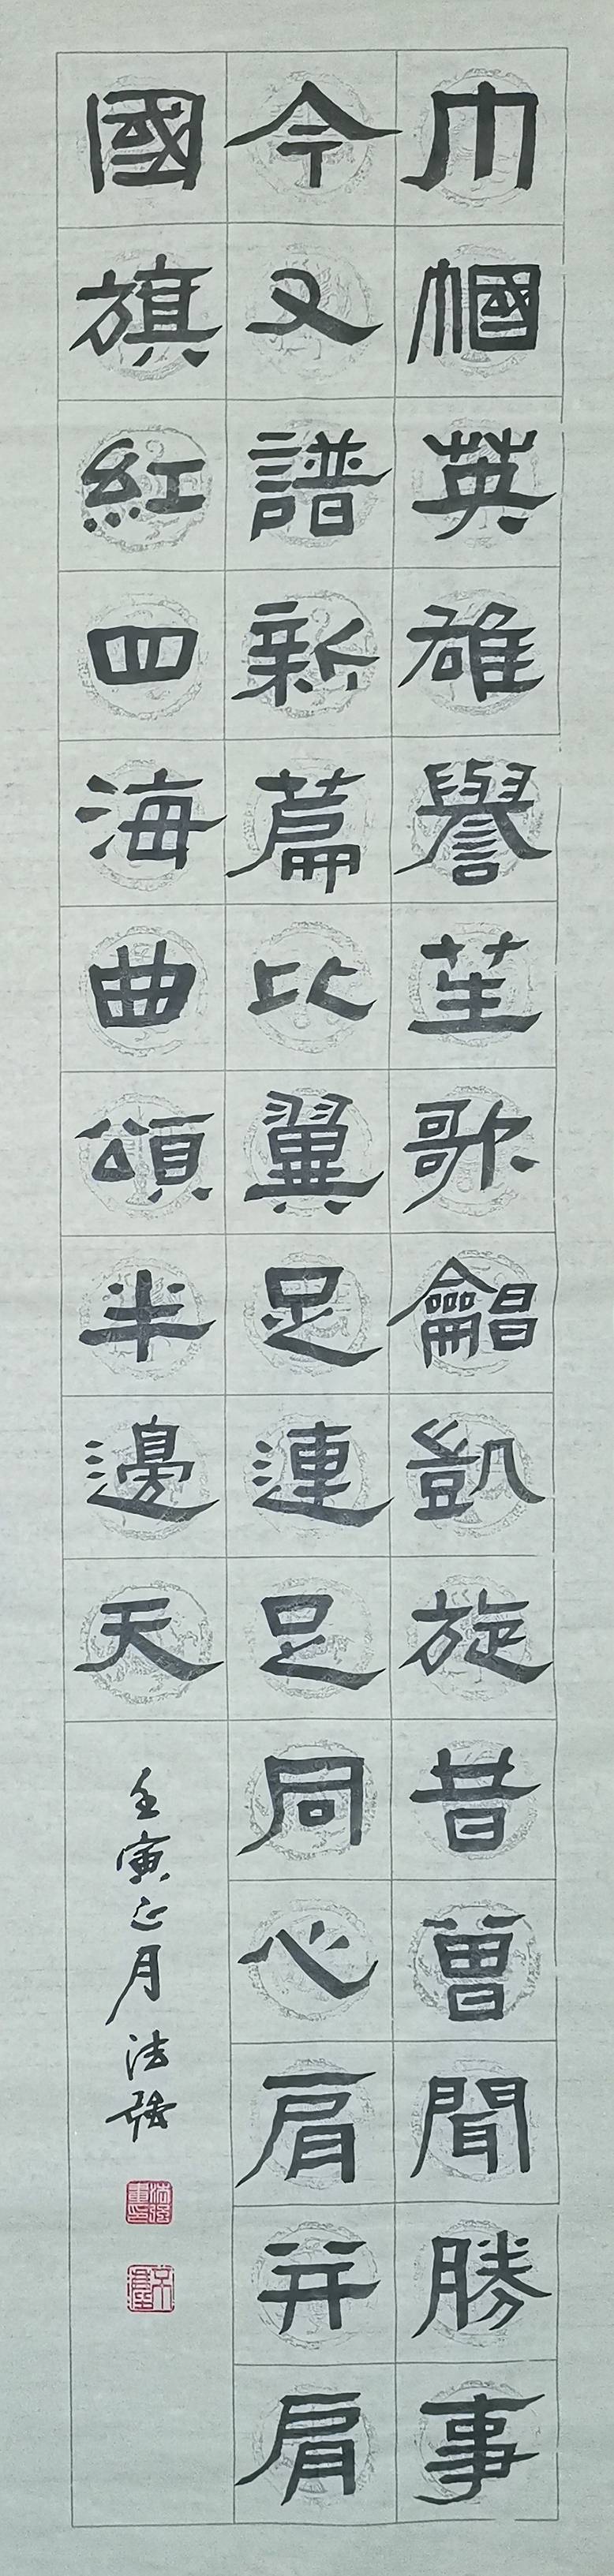 巾幗英雄譽笙歌凱旋昔曾聞勝事
今又譜新篇比翼足連足同心肩并肩
國旗紅四海曲頌半邊天
壬寅正月法强